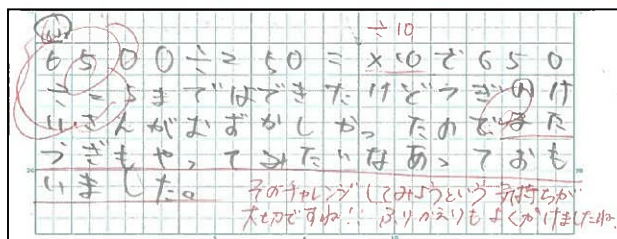 ÷10
6500÷250=×10で650
÷25まではできたけどつぎのけ
いさんがむずかしかったのでまた
つぎもやってみたいなあっておも
いました。
そのチャレンジしてみようという気持ちが
大切ですね!! ふりかえりもよくかけましたね